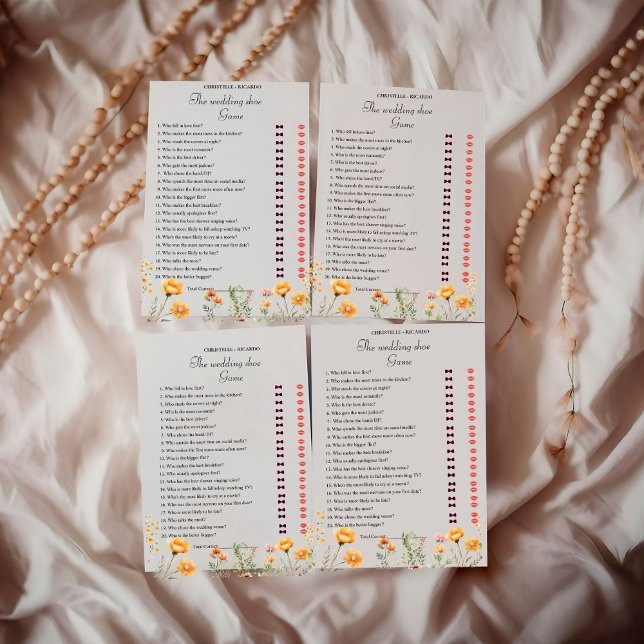 CHRISTELLE - RICARDO
The wedding shoe
Game
1. Who fell in love first?
2. Who makes the most mess in the kitchen?
3. Who steals the covers at night?
4. Who is the most romantic?
5. Who is the best driver?
6. Who gets the most jealous?
7. Who chose the band/DJ?
8. Who spends the most time on social media?
9. Who makes the first move more often now?
10. Who is the bigger flirt?
11. Who makes the best breakfast?
12. Who usually apologises first?
13. Who has the best shower singing voice?
14. Who is more likely to fall asleep watching TV?
15. Who's the most likely to cry at a movie?
16. Who was the most nervous on your first date?
17. Who is most likely to be late?
18. Who talks the most?
19. Who chose the wedding venue?
20. Who is the better hugger?
Total Correct:
CHRISTELLE - RICARDO
The wedding shoe
Game
1. Who fell in love first?
2. Who makes the most mess in the kitchen?
3. Who steals the covers at night?
4. Who is the most romantic?
5. Who is the best driver?
6. Who gets the most jealous?
7. Who chose the band/DJ?
8. Who spends the most time on social media?
9. Who makes the first move more often now?
10. Who is the bigger flirt?
11. Who makes the best breakfast?
12. Who usually apologises first?
13. Who has the best shower singing voice?
14. Who is more likely to fall asleep watching TV?
15. Who's the most likely to cry at a movie?
16. Who was the most nervous on your first date?
17. Who is most likely to be late?
18. Who talks the most?
19. Who chose the wedding venue?
20. Who is the better hugger?
Total Correct:
CHRISTELLE - RICARDO
The wedding shoe
Game
1. Who fell in love first?
2. Who makes the most mess in the kitchen?
3. Who steals the covers at night?
4. Who is the most romantic?
5. Who is the best driver?
6. Who gets the most jealous?
7. Who chose the band/DJ?
8. Who spends the most time on social media?
9. Who makes the first move more often now?
10. Who is the bigger flirt?
11. Who makes the best breakfast?
12. Who usually apologises first?
13. Who has the best shower singing voice?
14. Who is more likely to fall asleep watching TV?
15. Who's the most likely to cry at a movie?
16. Who was the most nervous on your first date?
17. Who is most likely to be late?
18. Who talks the most?
19. Who chose the wedding venue?
20. Who is the better hugger?
Total Correct:
CHRISTELLE - RICARDO
The wedding shoe
Game
1. Who fell in love first?
2. Who makes the most mess in the kitchen?
3. Who steals the covers at night?
4. Who is the most romantic?
5. Who is the best driver?
6. Who gets the most jealous?
7. Who chose the band/DJ?
8. Who spends the most time on social media?
9. Who makes the first move more often now?
10. Who is the bigger flirt?
11. Who makes the best breakfast?
12. Who usually apologises first?
13. Who has the best shower singing voice?
14. Who is more likely to fall asleep watching TV?
15. Who's the most likely to cry at a movie?
16. Who was the most nervous on your first date?
17. Who is most likely to be late?
18. Who talks the most?
19. Who chose the wedding venue?
20. Who is the better hugger?
Total Correct: